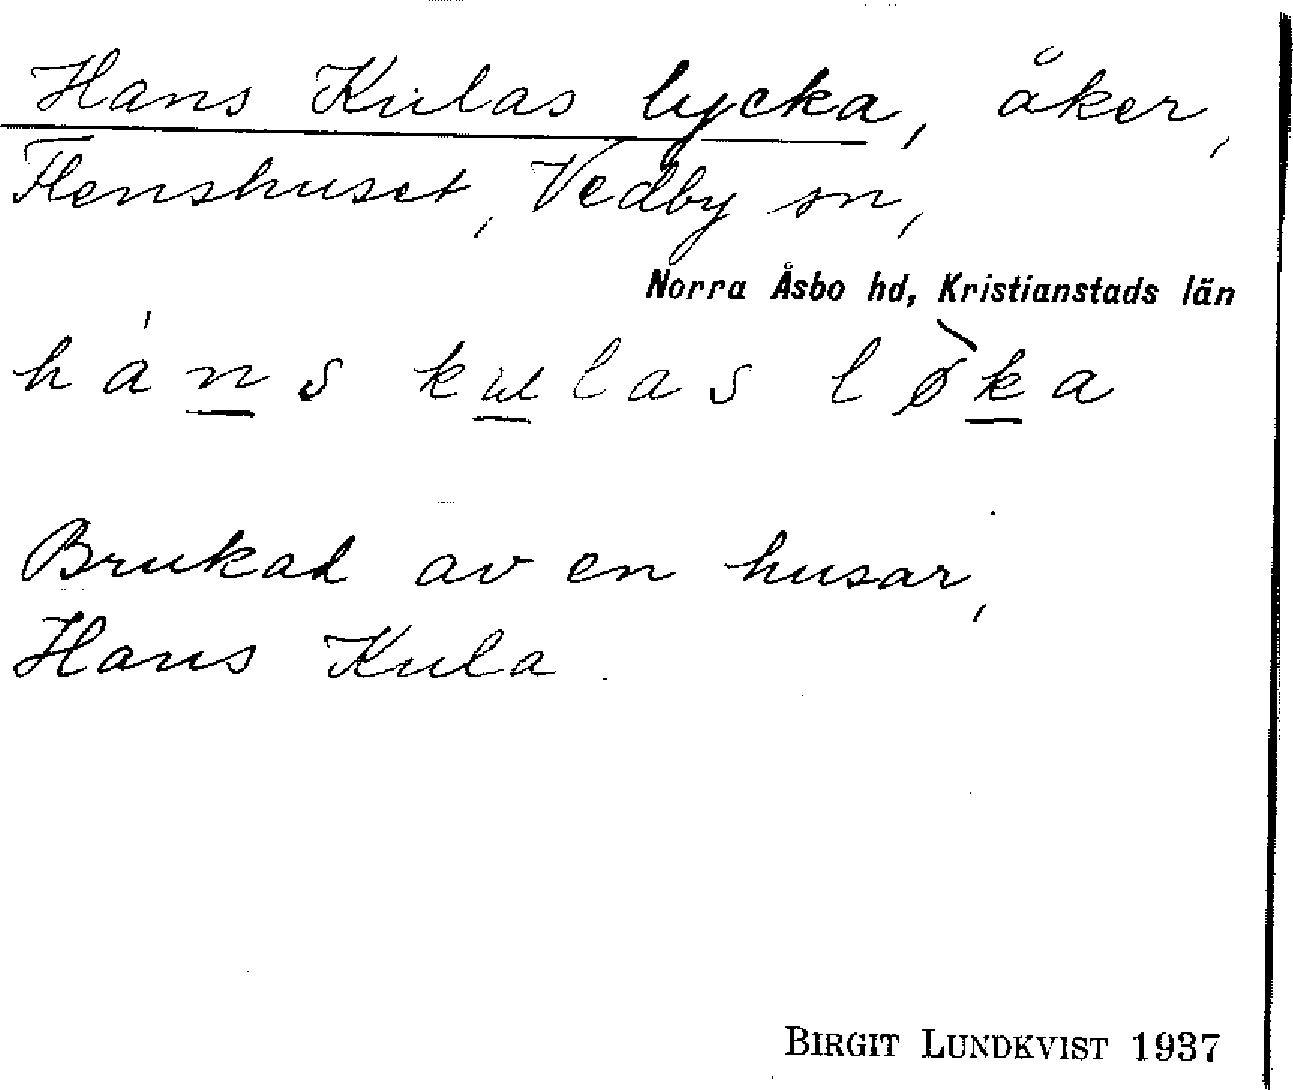 Hans Kulas lycka, åker,
Flenshuset, Vedby sn,
Norra Åsbo hd, Kristianstads län
háns kulas lø̀ka
Brukad av en husar,
Hans Kula.
BIRGIT LUNDKVIST 1937